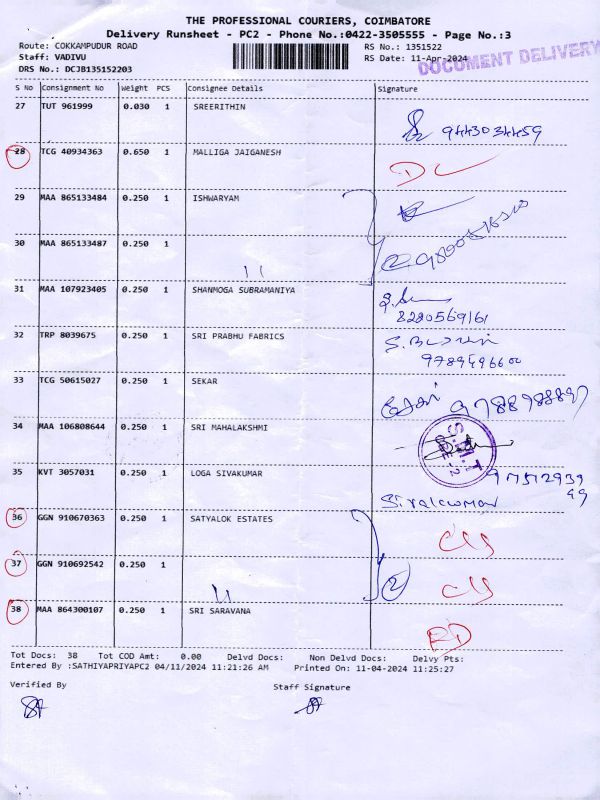 THE PROFESSIONAL COURIERS, COIMBATORE
Delivery Runsheet - PC2 - Phone No.:0422-3505555 - Page No.:3
Route: COKKAMPUDUR ROAD
Staff: VADIVU
DRS No.: DCJB135152203
RS No.: 1351522
RS Date: 11-Apr-2024
DOCUMENT DELIVERY
S No Consignment No Weight PCS Consignee Details Signature
27 TUT 961999 0.030 1 SREERITHIN
9443034459
28 TCG 40934363 0.650 1 MALLIGA JAIGANESH
DL
29 MAA 865133484 0.250 1 ISHWARYAM
30 MAA 865133487 0.250 1 11
2
31 MAA 107923405 0.250 1 SHANMOGA SUBRAMANIYA
8220569161
32 TRP 8039675 0.250 1 SRI PRABHU FABRICS
9789496600
33 TCG 50615027 0.250 1 SEKAR
34 MAA 106808644 0.250 1 SRI MAHALAKSHMI
35 KVT 3057031 0.250 1 LOGA SIVAKUMAR
Sivakumar
36 GGN 910670363 0.250 1 SATYALOK ESTATES
37 GGN 910692542 0.250 1 11
2
38 MAA 864300107 0.250 1 SRI SARAVANA
RD
Tot Docs: 38 Tot COD Amt: 0.00 Delvd Docs: Non Delvd Docs: Delvy Pts:
Entered By :SATHIYAPRIYAPC2 04/11/2024 11:21:26 AM Printed On: 11-04-2024 11:25:27
Verified By Staff Signature